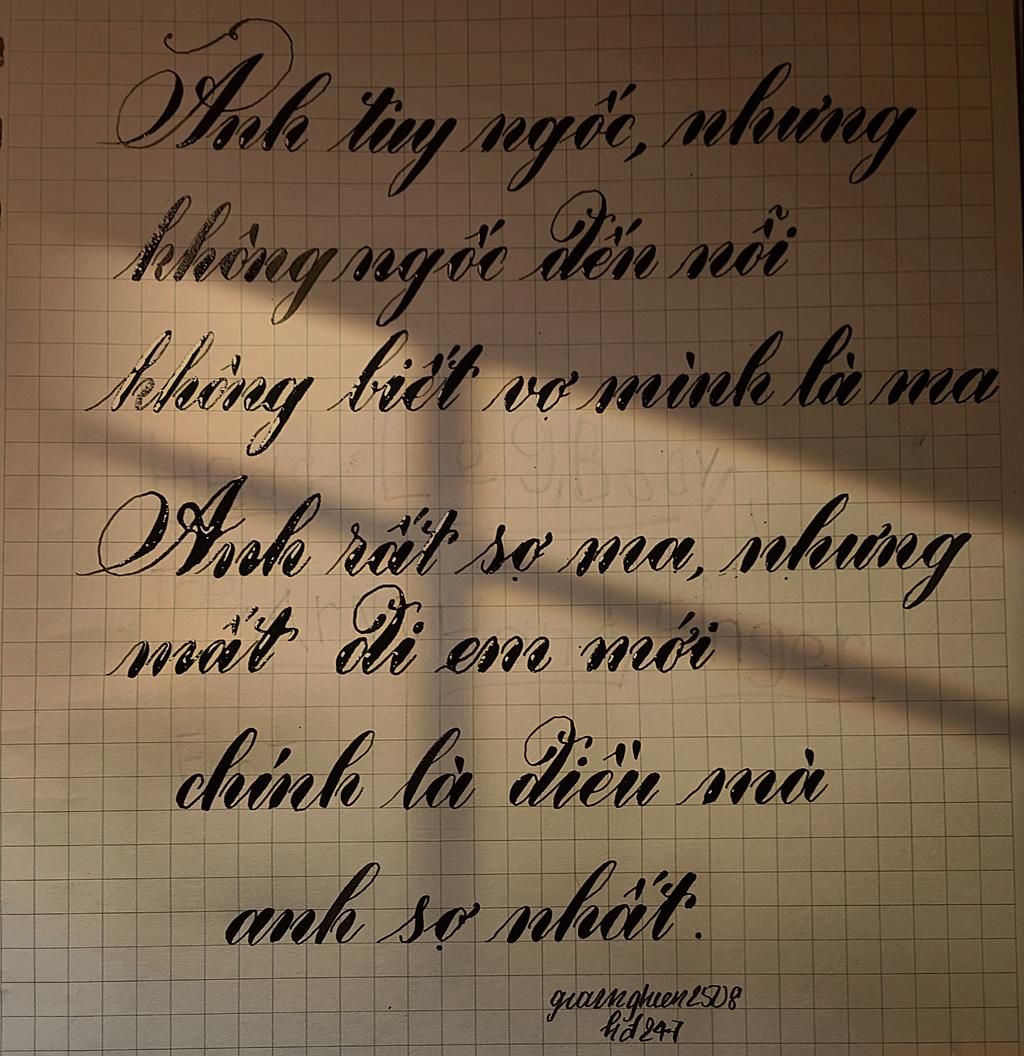 Anh tuy ngốc, nhưng
không ngốc đến nỗi
không biết vợ mình là ma
Anh rất sợ ma, nhưng
mất đi em mới
chính là điều mà
anh sợ nhất.